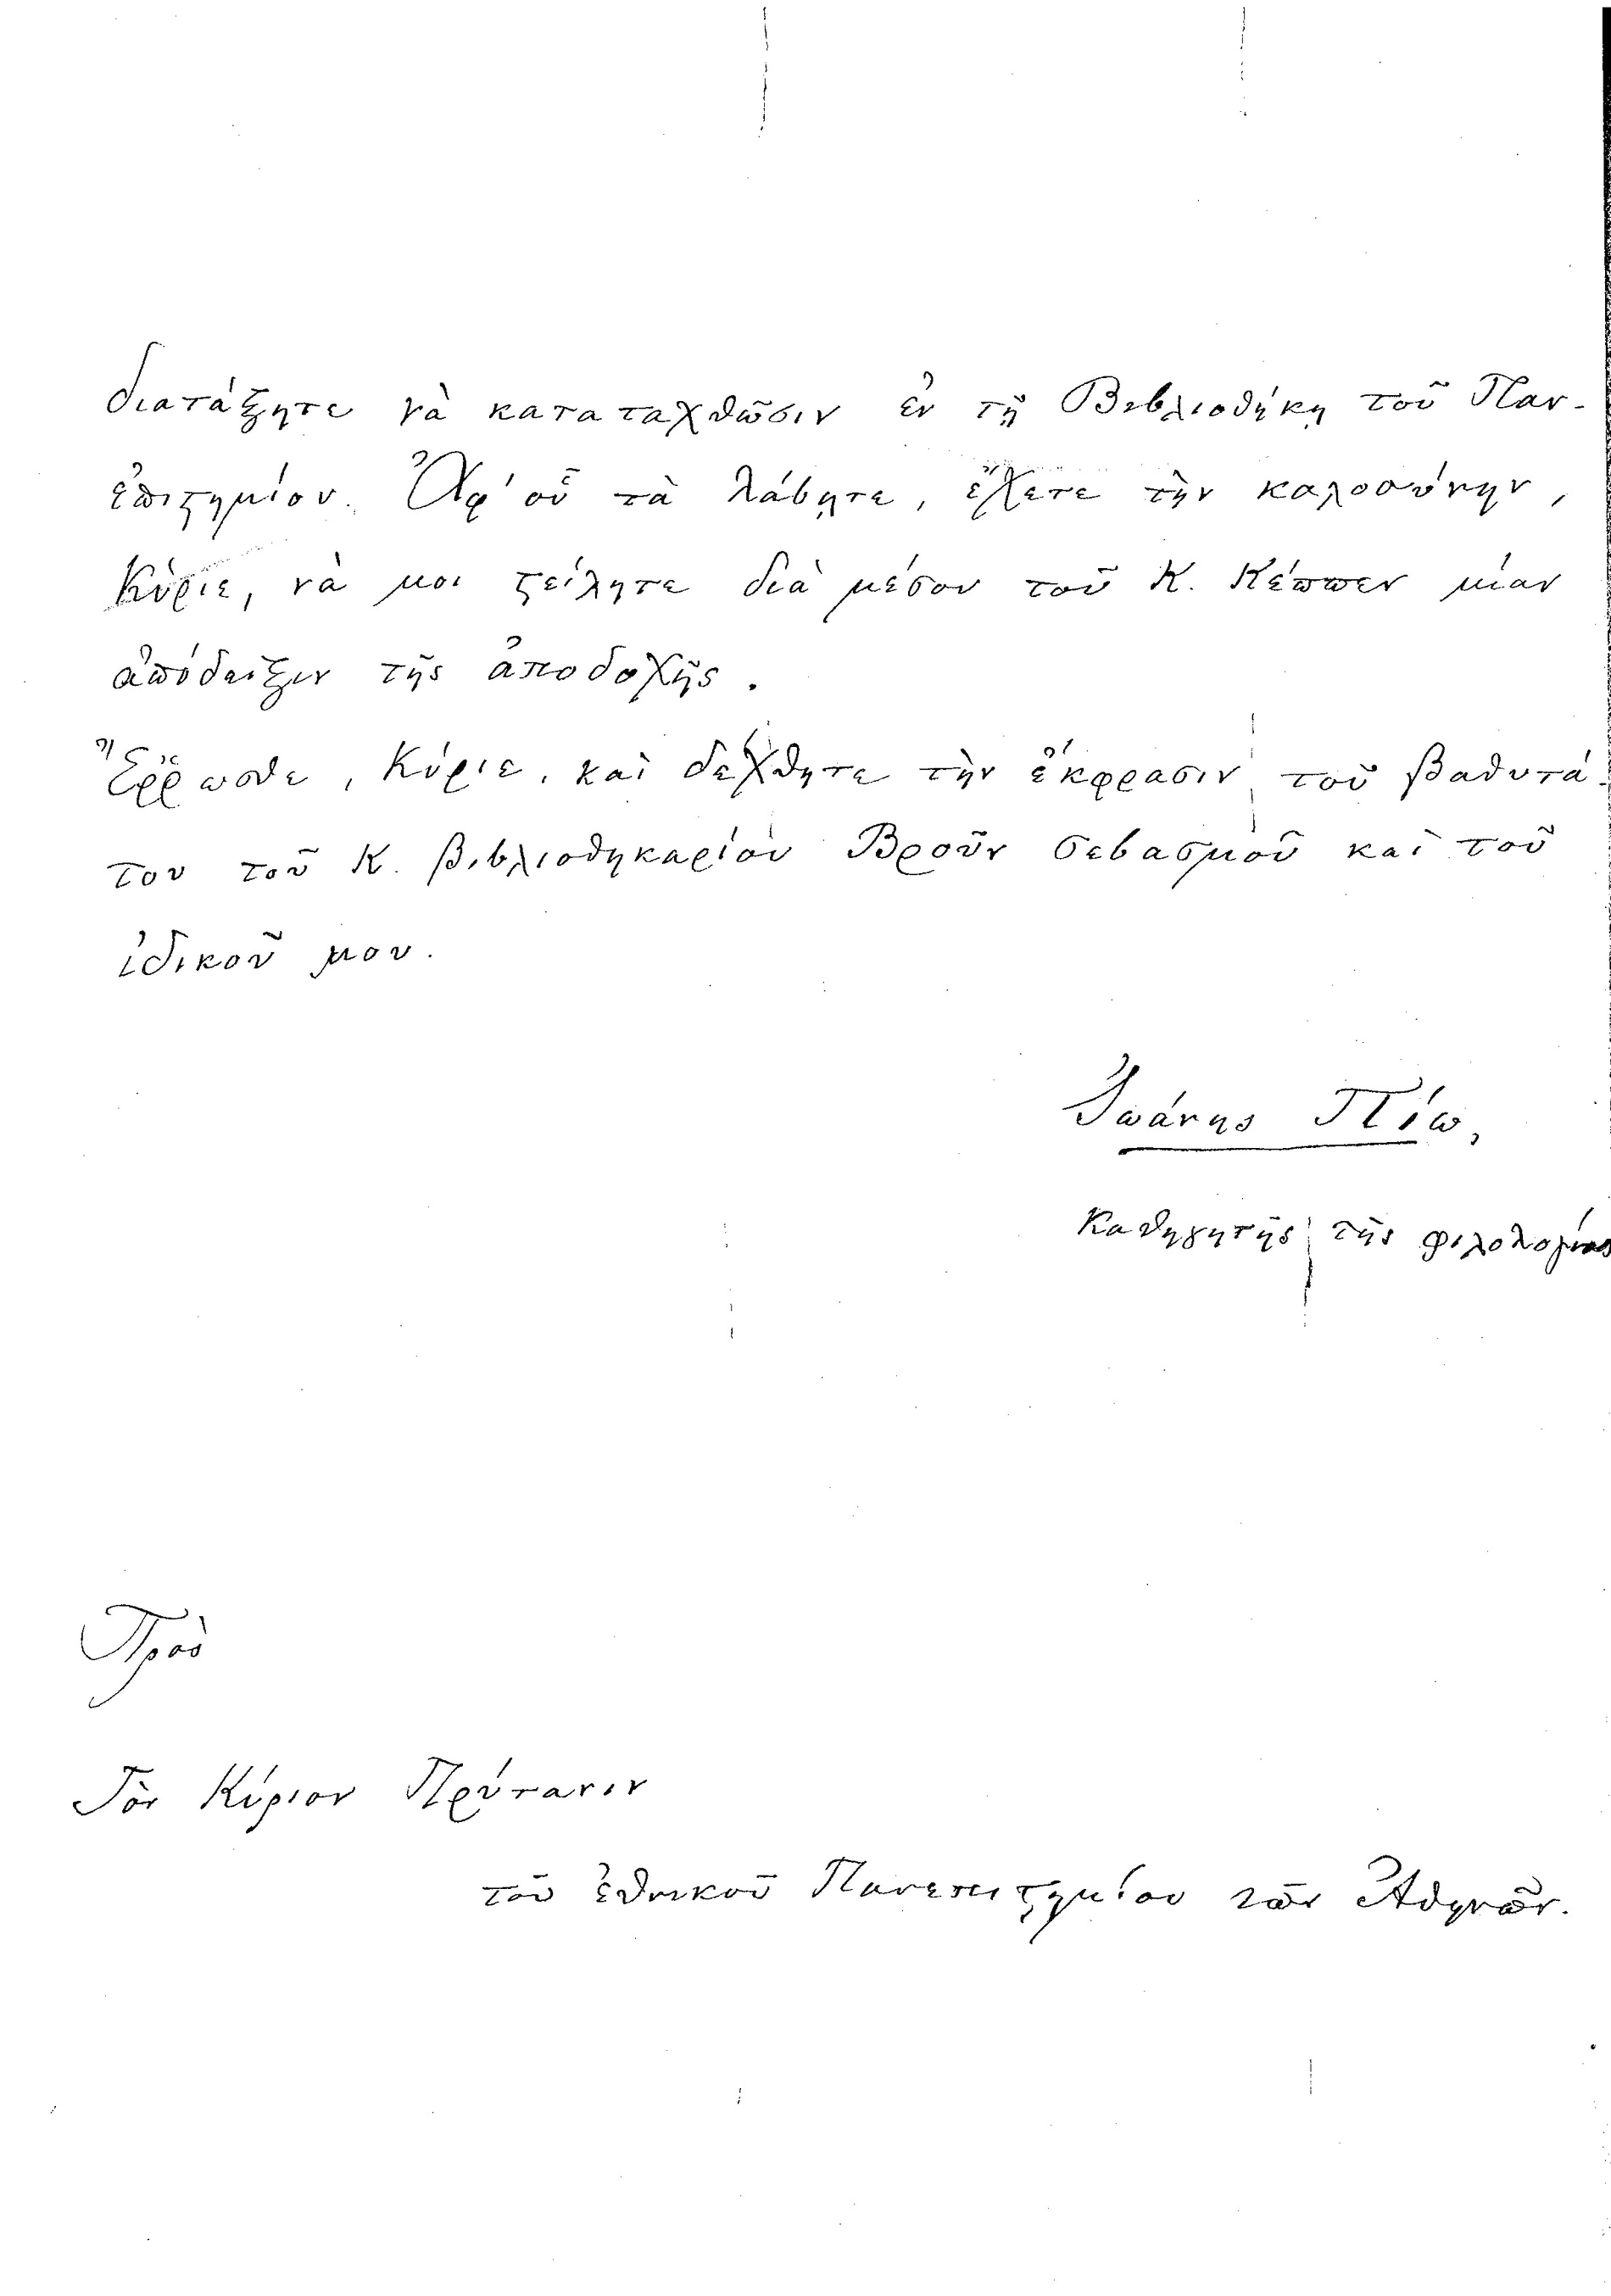 διατάξητε νὰ καταταχθῶσιν ἐν τῇ Βιβλιοθήκῃ τοῦ Παν-
επιϛημίου. Ἀφ' οὗ τὰ λάβητε, ἔχετε τὴν καλοσύνην,
Κύριε, νὰ μοι ϛείλητε διὰ μέσου τοῦ Κ. Κέππεν μίαν
ἀπόδειξιν τῆς ἀποδοχῆς.
Ἔῤῥωσθε, Κύριε, καὶ δεχθητε τὴν ἔκφρασιν τοῦ βαθυτά-
του τοῦ Κ. βιβλιοθηκαρίου Βροῦν σεβασμοῦ καὶ τοῦ
ἰδικοῦ μου.
Ἰωάνης Πίω,
Καθηγητὴς τῆς φιλολογίας
Πρὸς
Τὸν Κύριον Πρύτανιν
τοῦ ἐθνικοῦ Πανεπιϛημίου τῶν Ἀθηνῶν.